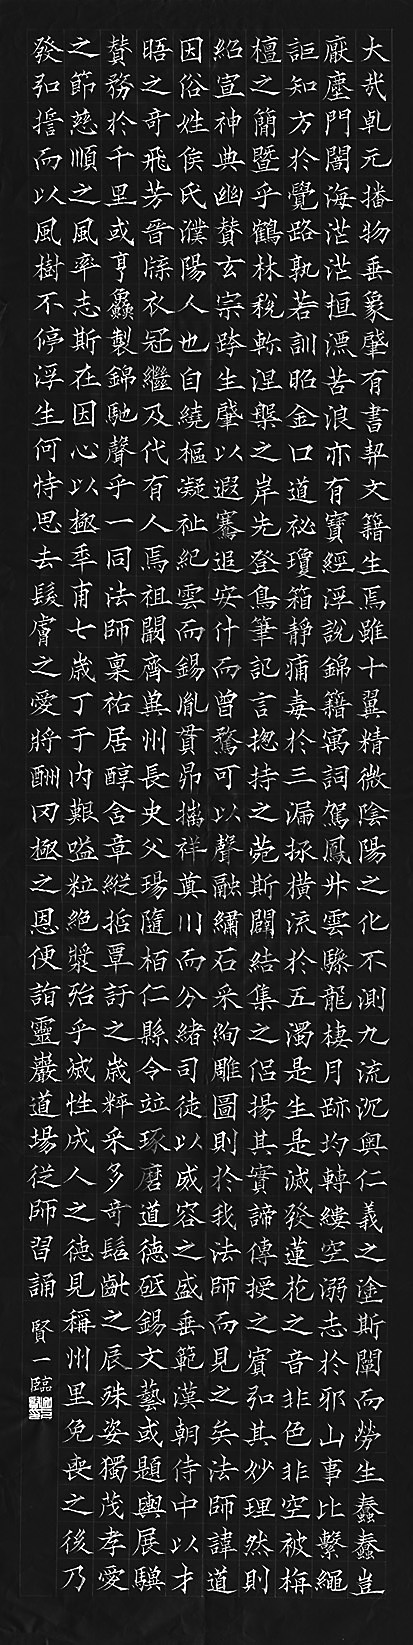 大哉乹元播物垂象肇有書契文籍生焉雖十翼精微陰陽之化不測九流沉奥仁義之塗斯闡而勞生蠢蠢豈
厭塵門闇海茫茫恒漂苦浪亦有寶經浮說錦籍寓詞駕鳳升雲驂龍棲月跡均轉縷空溺志於邪山事比繫繩
詎知方於覺路孰若訓昭金口道祕瓊箱靜痡毒於三漏拯橫流於五濁是生是滅發蓮花之音非色非空被栴
檀之簡暨乎鶴林稅軫涅槃之岸先登鳥筆記言揔持之菀斯闢結集之侶揚其實諦傳授之賓弘其妙理然則
紹宣神典幽贊玄宗跨生肇以遐騫追安什而曾騖可以聲融繡石采絢雕圖則於我法師而見之矣法師諱道
因俗姓侯氏濮陽人也自繞樞凝祉紀雲而錫胤貰昴摛祥奠川而分緒司徒以威容之盛垂範漢朝侍中以才
晤之奇飛芳晉牒衣冠繼及代有人焉祖闕齊兾州長史父瑒隨栢仁縣令竝琢磨道德砥錫文藝或題輿展驥
贊務於千里或亨鱻製錦馳聲乎一同法師稟祐居醇含章縱喆覃訏之歲粹采多奇髫齓之辰殊姿獨茂孝愛
之節慈順之風率志斯在因心以極秊甫七歲丁于内艱嗌粒絕漿殆乎滅性成人之德見稱州里免喪之後乃
發弘誓而以風樹不停浮生何恃思去髮膚之愛將酬罔極之恩便詣靈巖道場從師習誦 賢一臨